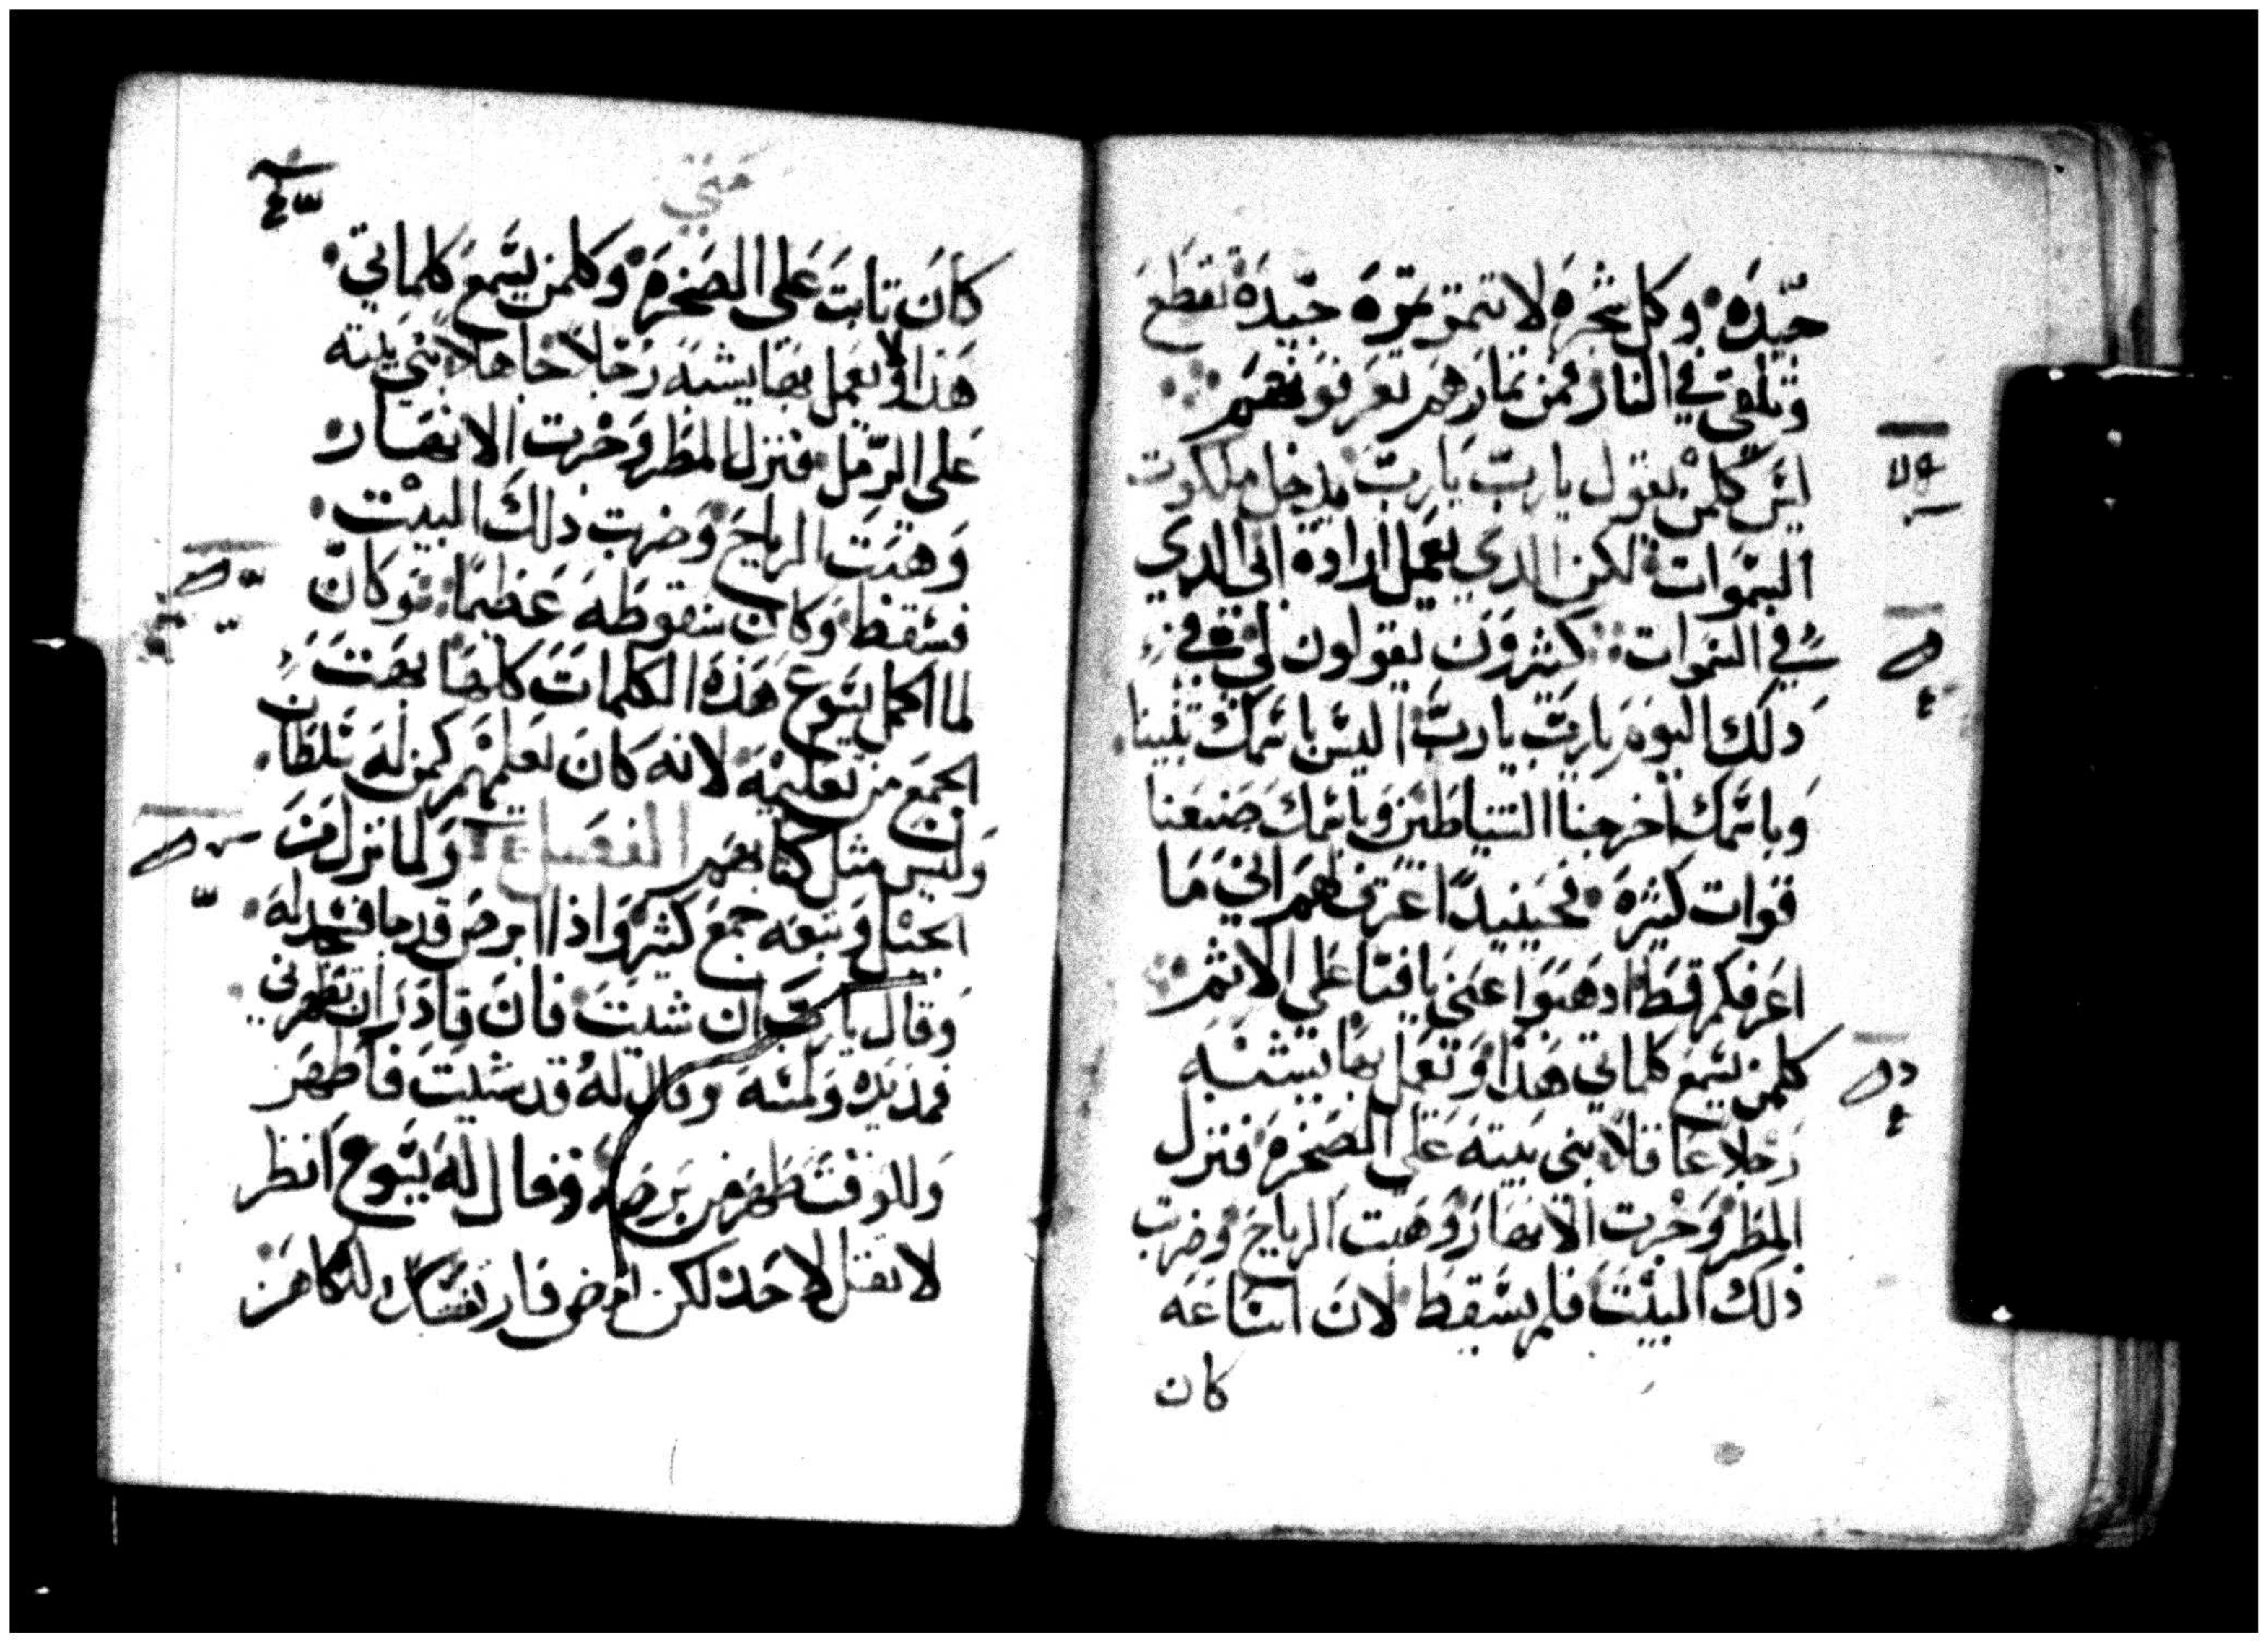 جيّده وكل شجره لا تتمر تمره جيّدة تقطع
وتلقى في النار فمن تمارهم تعرفونهم
ليس كلمن يقول يا ربّ يا ربّ يدخل ملكوت
السموات لكن الدي يعمل ارادة ابى الدي
في السموات كثيرون يقولون لي في
دلك اليوم يا ربّ يا ربّ اليس باسمك تنبينا
وباسمك اخرجنا الشياطين وباسمك صنعنا
قوات كثيره فحينيدًا اعترف لهم اني ما
اعرفكم قط ادهبوا عني يا فعلة الاثم
كلمن يسمع كلماتي هذا ويعمل بها يشبه
رجلا عاقلا بنى بيته على الصخرة فنزل
المطر وجرت الانهار وهبت الرياح وضربت
ذلك البيت فلم يسقط لان اساسه
كان
متي
كان تابت على الصخرة وكلمن يسمع كلماتي
هذا ولا يعمل بها يشبه رجلا جاهلا بنى بيته
على الرّمل فنزل المطر وجرت الانهار
وهبت الرياح وضربت ذلك البيت
فسقط وكان سقوطه عظيمًا وكان
لما اكمل يسوع هذه الكلمات كلها بهت
الجمع من تعليمه لانه كان يعلمهم كمن له سلطان
وليس مثل كتابهم الفصل ولما نزل من
الجبل وتبعه جمع كثير واذا ابرص قد جا فسجد له
وقال يا رب ان شيت فانت قادر ان تطهرني
فمد يده ولمسه وقال له قد شيت فاطهر
وللوقت طهر من برصه وقال له يسوع انظر
لا تقل لاحد لكن امض فار نفسك للكاهن